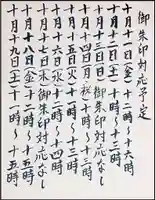 御朱印対応予定
十月十一日(金)十二時〜十六時
十月十二日(土)十一時〜十三時
十月十三日(日)御朱印対応なし
十月十四日(月)祝十一時〜十三時
十月十五日(火)十一時〜十三時
十月十六日(水)十二時〜十四時
十月十七日(木)御朱印対応なし
十月十八日(金)十二時〜十五時
十月十九日(土)十一時〜十五時